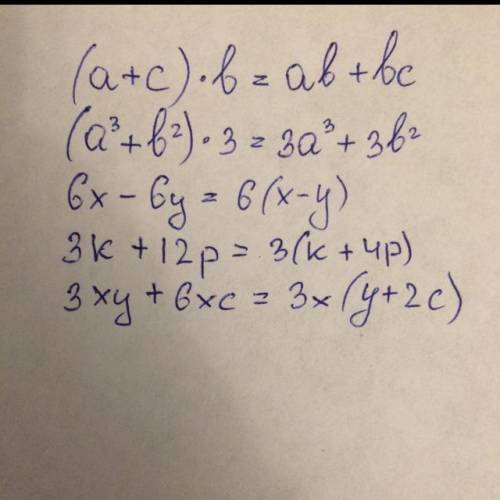 (a+c)·b = ab + bc
(a³+b²)·3 = 3a³ + 3b²
6x – 6y = 6(x-y)
3k + 12p = 3(k + 4p)
3xy + 6xc = 3x(y+2c)